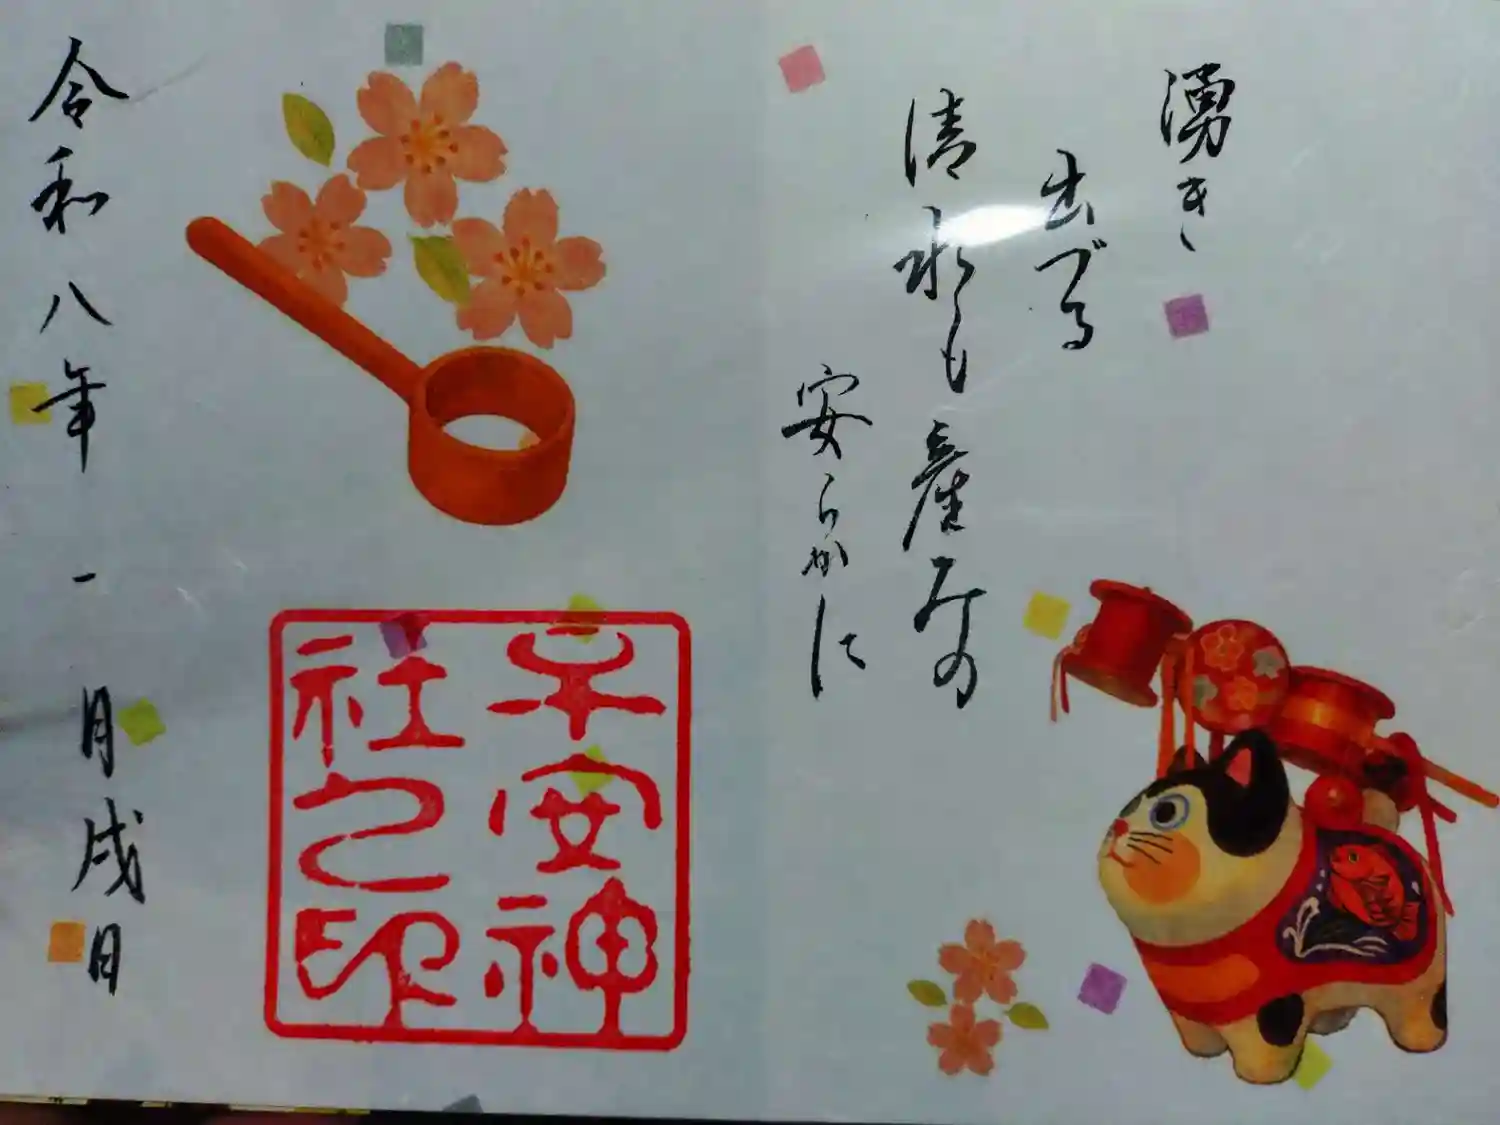 湧き
出づる
清水も産声の
安らかに
子安神
社之印
令和八年一月戌日